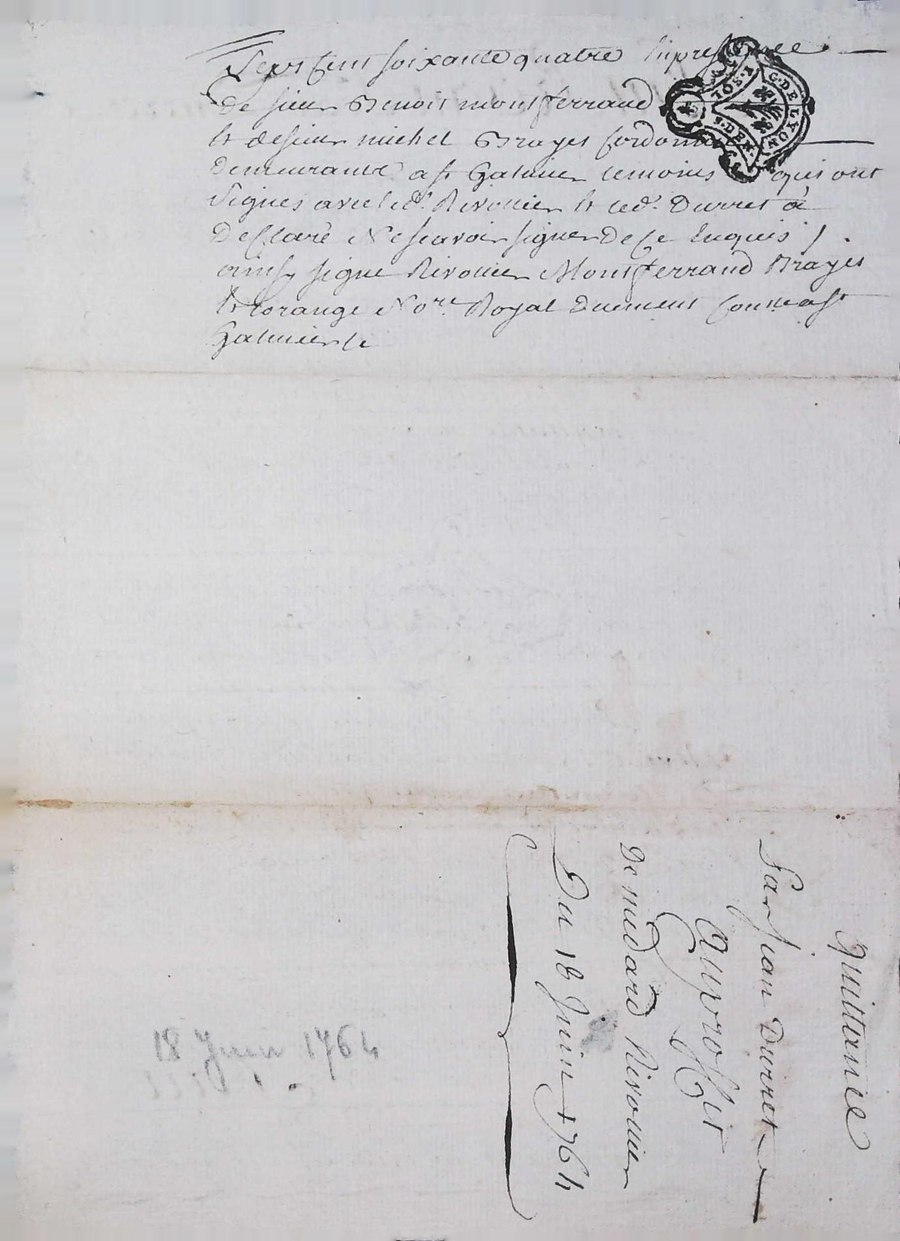 Sept Cent soixante quatre En presence
de sieur Benoit montferrand
Et de sieur michel Brayes Cordonnier
demeurants a st Galmier temoins qui ont
signes avec led. Rivoirier et led. Durret a
Declaré Ne scavoir signer De Ce Enquis /.
ainsy signe Rivoirier Montferrand Brayes
Et Lorange Nore. Royal duement Conte a st
Galmier le
G. DE LYON
2.DEN
Quittance
Par Jean Durret
Au proffit
De médard Rivoirier
Du 18 Juin 1764
18 Juin 1764